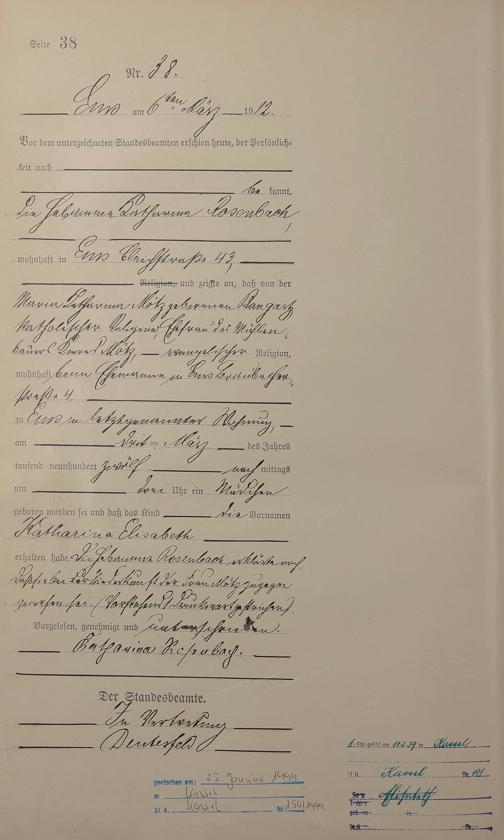 Seite 38
Nr. 38.
Ems am 6ten März 1912.
Vor dem unterzeichneten Standesbeamten erschien heute, der Persönlich-
keit nach
bekannt,
die Hebamme Katharina Rosenbach,
wohnhaft in Ems Bleichstraße 43,
Religion, und zeigte an, daß von der
Maria Katharina Mötz geborenen
katholischer Religion, Ehefrau des Mühlen-
bauers Mötz, evangelischer Religion,
wohnhaft beim Ehemanne in Ems Braubacher-
straße 4
zu Ems in letztgenannter Wohnung,
am dritten März des Jahres
tausend neunhundert zwölf nachmittags
um drei Uhr ein Mädchen
geboren worden sei und daß das Kind die Vornamen
Katharina Elisabeth
erhalten habe. Die Hebamme Rosenbach erklärte noch,
daß sie bei der Niederkunft der Frau Mötz zugegen
gewesen sei. (Vorstehend 1 Druckwort gestrichen).
Vorgelesen, genehmigt und unterschrieben.
Katharina Rosenbach.
Der Standesbeamte.
In Vertretung
gestorben am: 25. Januar 1999
in Kassel
St. A. Kassel Nr. 254/1999
1. Ehe geschl. am 11.2.39 in Kassel
St. A. Kassel Nr.